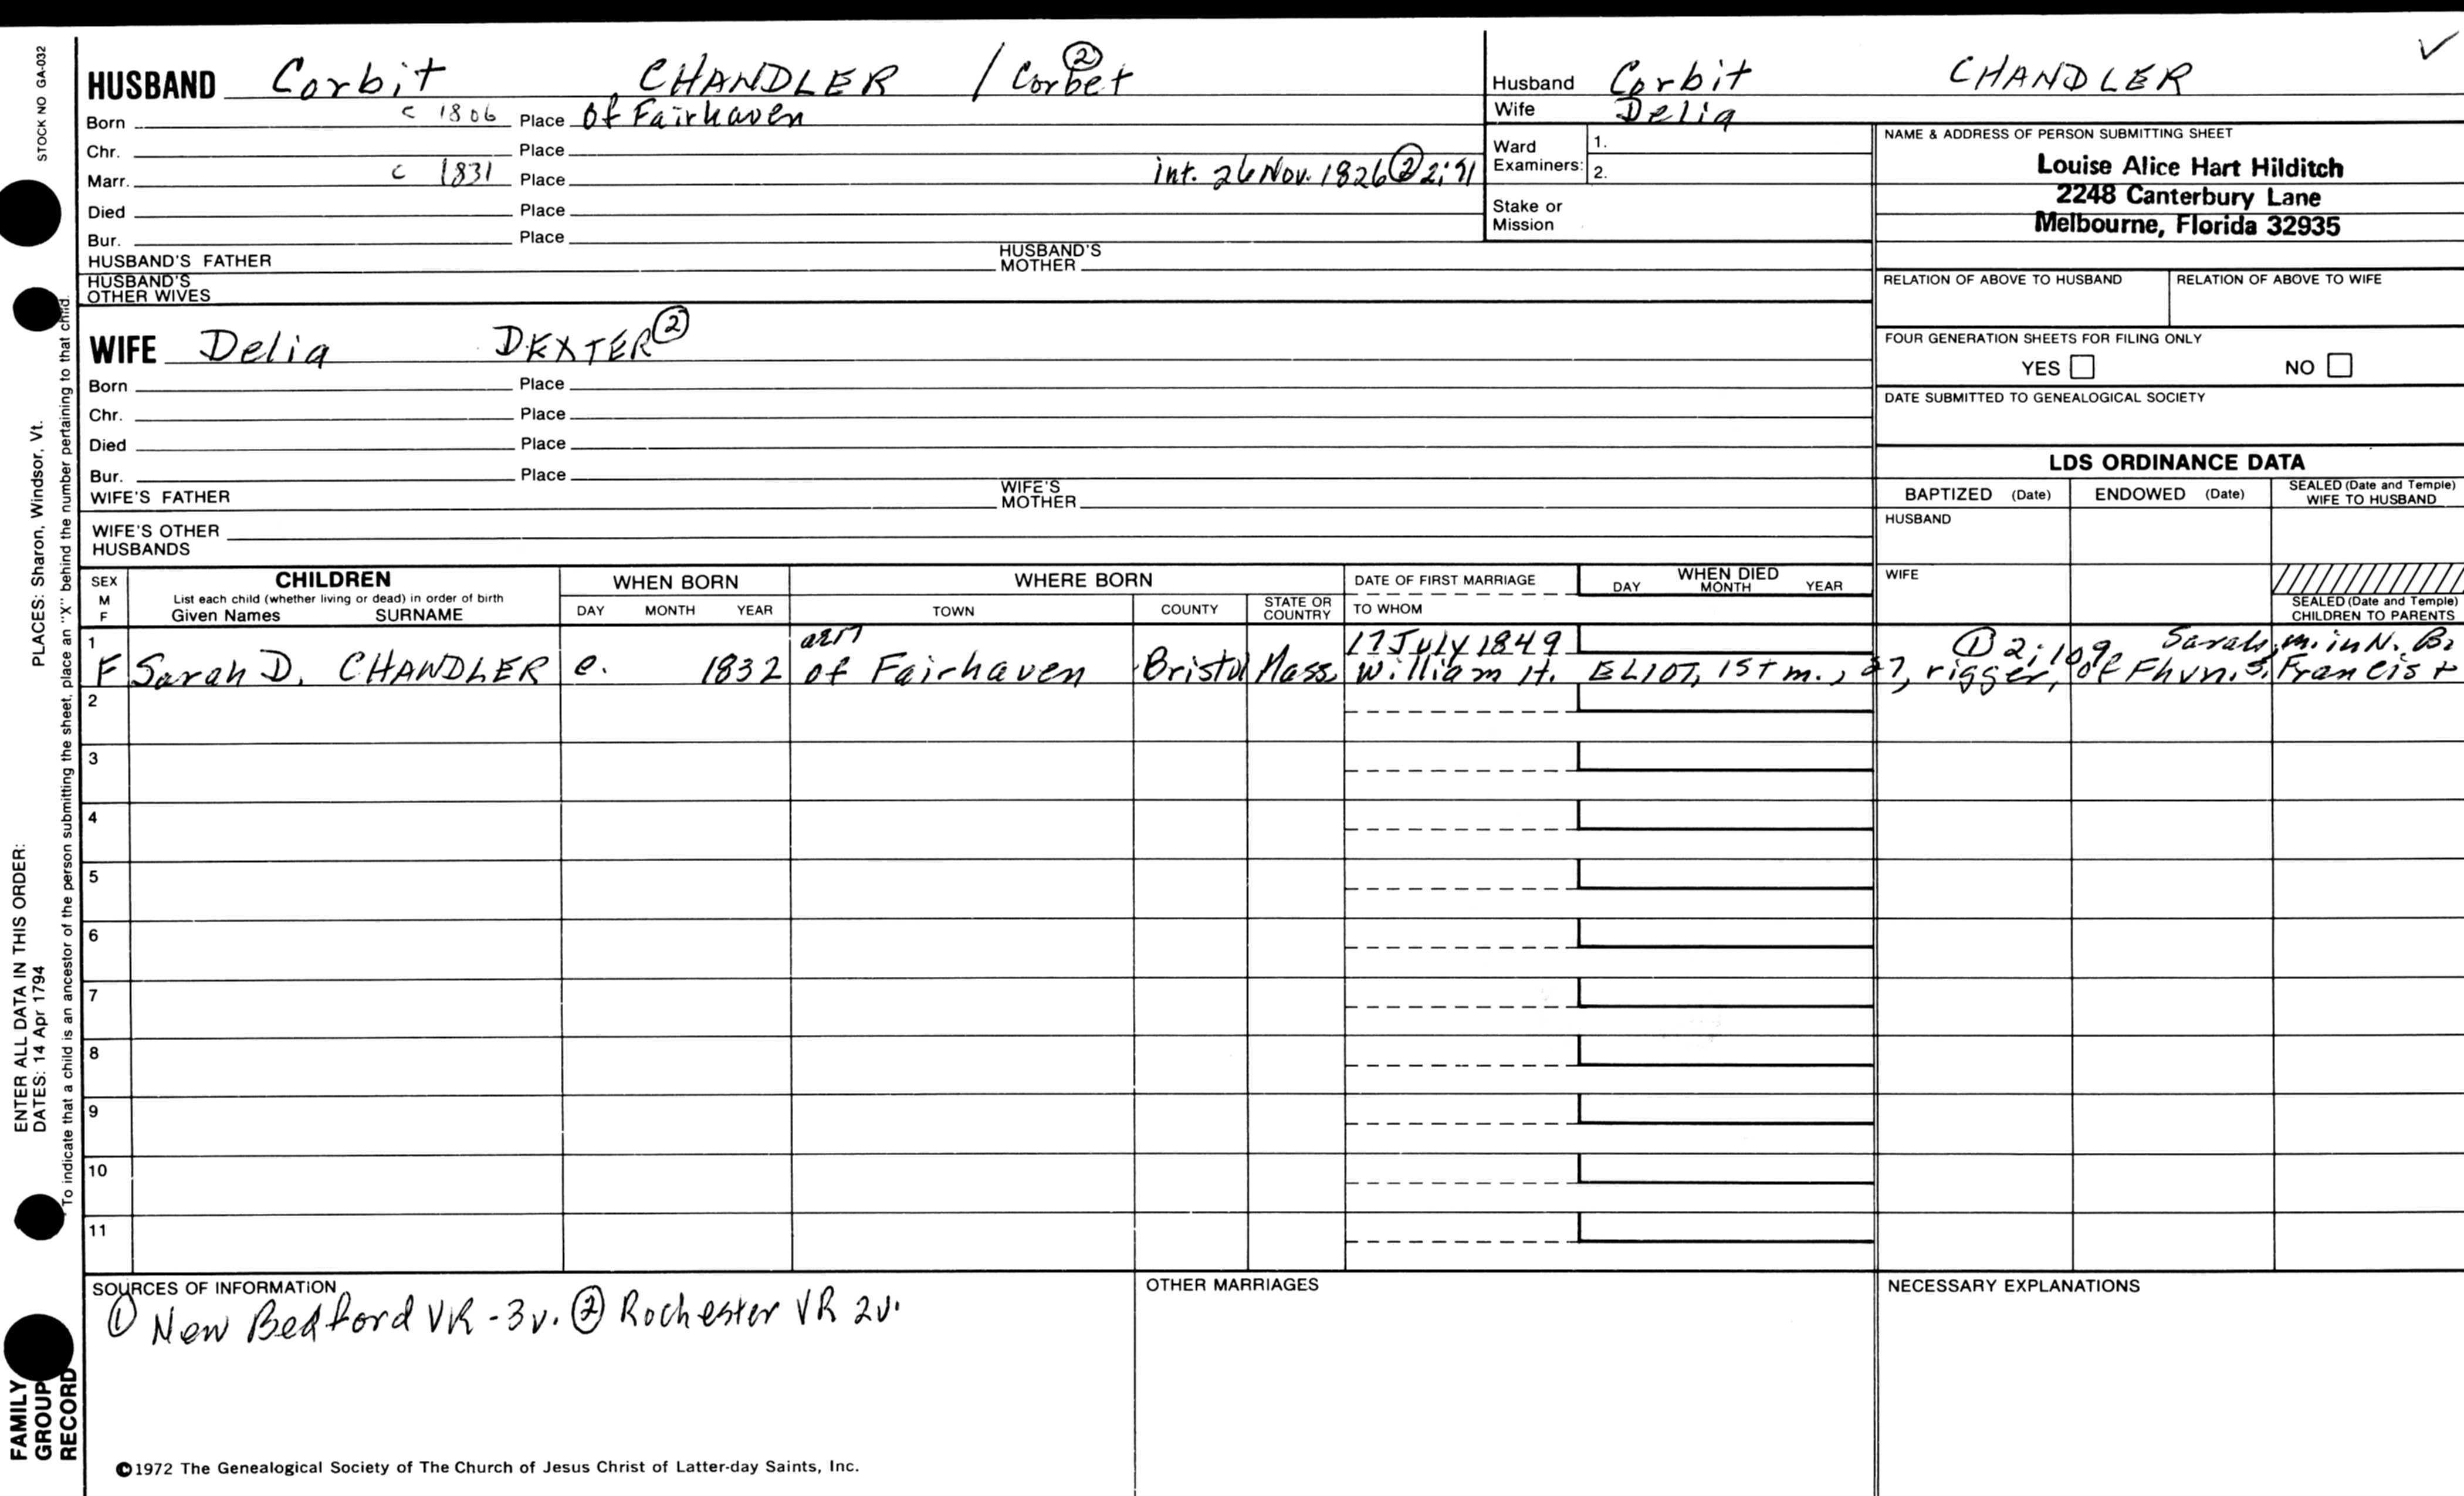 STOCK NO GA-032
HUSBAND Corbit CHANDLER / Corbet ②
Born c 1806 Place Of Fairhaven
Chr. Place
Marr. c 1831 Place int. 26 Nov. 1826 ② 2:91
Died Place
Bur. Place
HUSBAND'S FATHER HUSBAND'S MOTHER
HUSBAND'S OTHER WIVES
WIFE Delia DEXTER ②
Born Place
Chr. Place
Died Place
Bur. Place
WIFE'S FATHER WIFE'S MOTHER
WIFE'S OTHER HUSBANDS
Husband Corbit CHANDLER
Wife Delia
Ward Examiners: 1.
2.
Stake or Mission
NAME & ADDRESS OF PERSON SUBMITTING SHEET
Louise Alice Hart Hilditch
2248 Canterbury Lane
Melbourne, Florida 32935
RELATION OF ABOVE TO HUSBAND RELATION OF ABOVE TO WIFE
FOUR GENERATION SHEETS FOR FILING ONLY
YES NO
DATE SUBMITTED TO GENEALOGICAL SOCIETY
LDS ORDINANCE DATA
BAPTIZED (Date) ENDOWED (Date) SEALED (Date and Temple) WIFE TO HUSBAND
HUSBAND
WIFE
SEALED (Date and Temple) CHILDREN TO PARENTS
SEX M F
CHILDREN
List each child (whether living or dead) in order of birth
Given Names SURNAME
WHEN BORN
DAY MONTH YEAR
WHERE BORN
TOWN COUNTY STATE OR COUNTRY
DATE OF FIRST MARRIAGE
TO WHOM
WHEN DIED
DAY MONTH YEAR
1 17 July 1849 ① 2:109 Sarah, m. in N. B.
F Sarah D. CHANDLER c. 1832 of Fairhaven Bristol Mass. William H. ELIOT, 1st m., 27, rigger, of Fhvn. S. Francis +
2
3
4
5
6
7
8
9
10
11
SOURCES OF INFORMATION
① New Bedford VR - 3v. ② Rochester VR 2v.
OTHER MARRIAGES
NECESSARY EXPLANATIONS
©1972 The Genealogical Society of The Church of Jesus Christ of Latter-day Saints, Inc.
ENTER ALL DATA IN THIS ORDER:
DATES: 14 Apr 1794 PLACES: Sharon, Windsor, Vt.
To indicate that a child is an ancestor of the person submitting the sheet, place an "X" behind the number pertaining to that child.
FAMILY GROUP RECORD